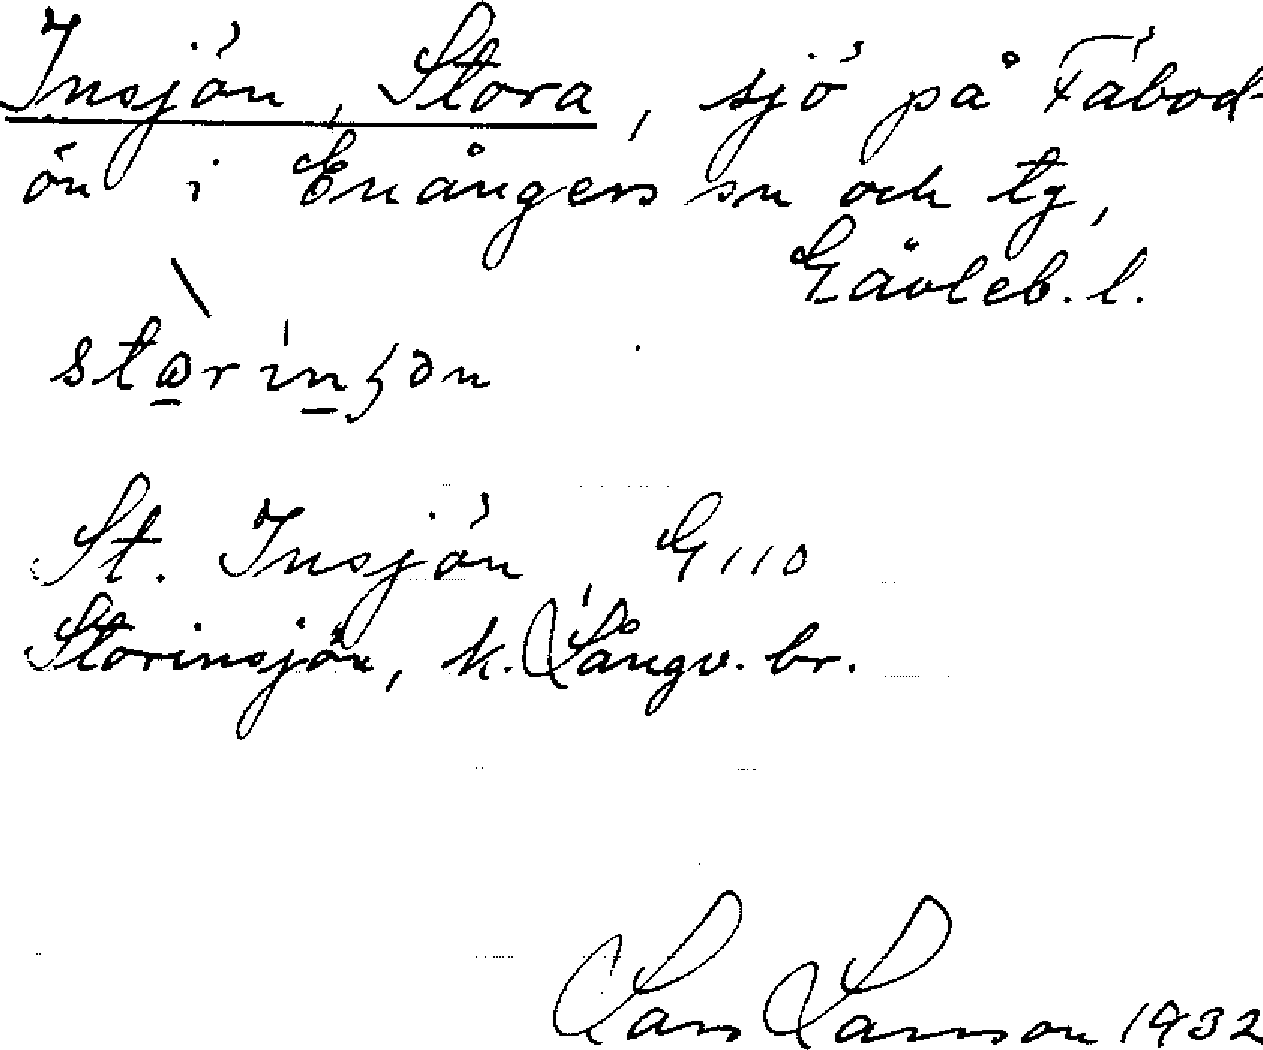 Insjön, Stora, sjö på Fäbod-
ön i Enångers sn och tg,
Gävleb. l.
St. Insjön G 110
Storinsjön, k. Långv. br.
Lars Larsson 1932